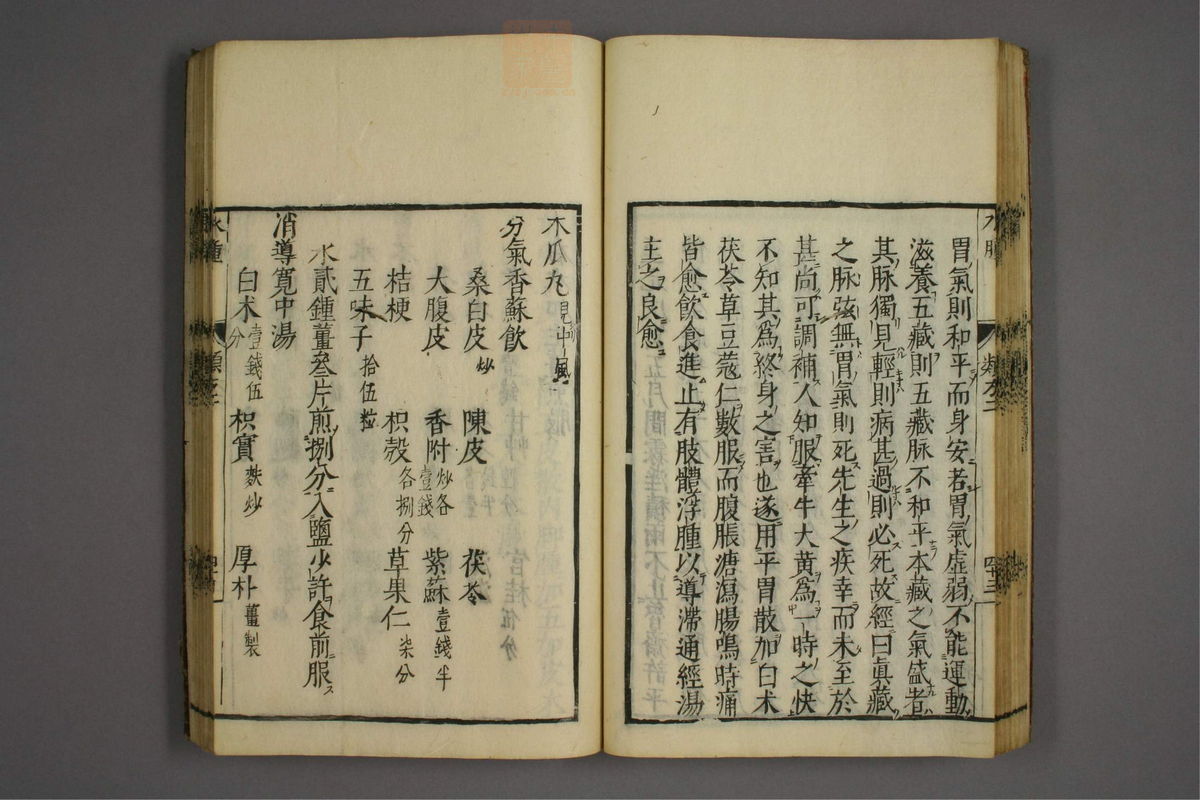 胃氣則和平而身安若胃氣虛弱不能運動
滋養五藏則五藏脉不和平本藏之氣盛者
其脉獨見輕則病甚過則必死故經曰眞藏
之脉弦無胃氣則死先生之疾幸而未至於
甚尚可調補人知服牽牛大黃爲一時之快
不知其爲終身之害也遂用平胃散加白术
茯苓草豆蔻仁數服而腹脹溏瀉腸鳴時痛
皆愈飲食進止有肢體浮腫以導滯通經湯
主之良愈
木瓜丸 見中風
分氣香蘇飲
桑白皮 炒 陳皮 茯苓
大腹皮 香附 炒各壹錢 紫蘇 壹錢半
桔梗 枳殼 各捌分 草果仁 柒分
五味子 拾伍粒
水貳鍾薑叄片煎捌分入鹽少許食前服
消導寬中湯
白术 壹錢伍分 枳實 麩炒 厚朴 薑製